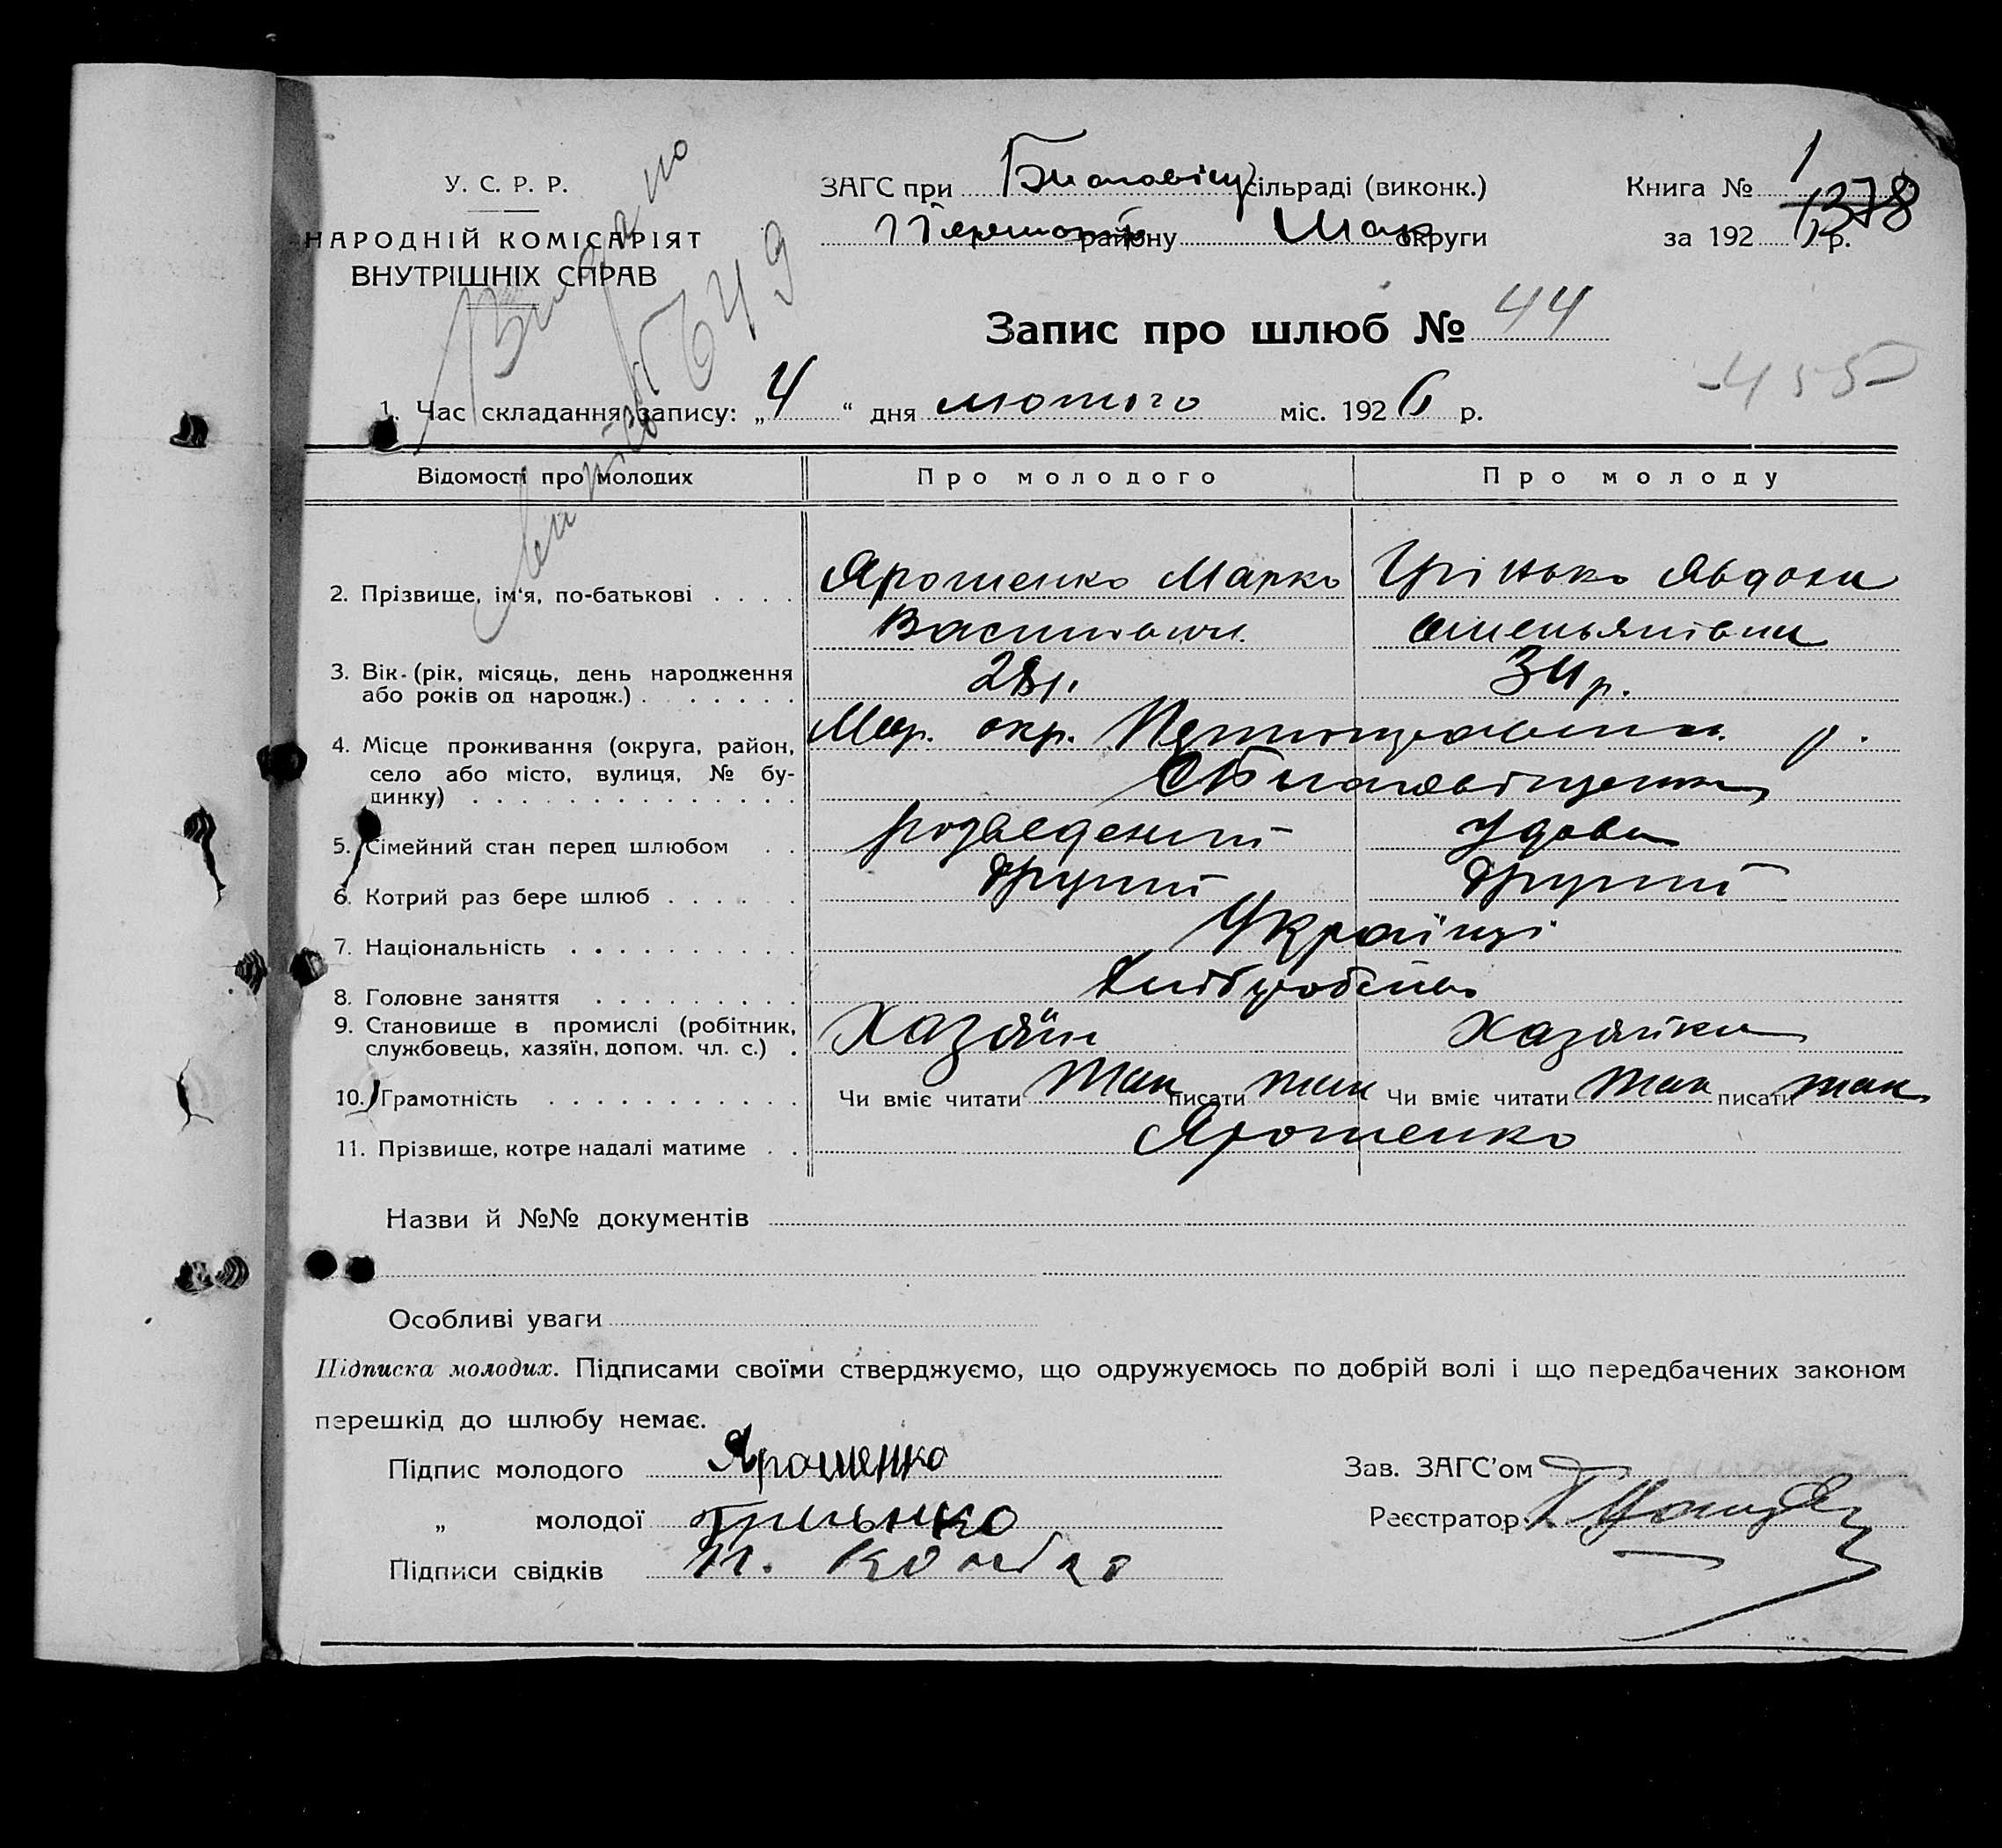 У. С. Р. Р.
НАРОДНІЙ КОМІСАРІЯТ
ВНУТРІШНІХ СПРАВ
Видано
649
ЗАГС при сільраді (виконк.)
району Мар округи
Книга № 1
1378
за 192 6 р.
Запис про шлюб № 44
455
1. Час складання запису: „ 4 “ дня лютого міс. 192 6 р.
Відомості про молодих Про молодого Про молоду
2. Прізвище, ім'я, по-батькові . . . . Ярошенко Марко Грінько Явдоха
Васильович Омельянівна
3. Вік (рік, місяць, день народження
або років од народж.) . . . . . . . 28 р. 34 р.
4. Місце проживання (округа, район, Мар. окр. р.
село або місто, вулиця, № бу-
динку) . . . . . . . . . . . . . .
5. Сімейний стан перед шлюбом . . розведений Удова
6. Котрий раз бере шлюб . . . . . . другий другий
7. Національність . . . . . . . . . . Українці
8. Головне заняття . . . . . . . . . Хліборобство
9. Становище в промислі (робітник,
службовець, хазяїн, допом. чл. с.) . Хазяїн Хазяйка
10. Грамотність . . . . . . . . . . . Чи вміє читати так писати так Чи вміє читати так писати так
11. Прізвище, котре надалі матиме . . Ярошенко
Назви й №№ документів
Особливі уваги
Підписка молодих. Підписами своїми стверджуємо, що одружуємось по добрій волі і що передбачених законом
перешкід до шлюбу немає.
Підпис молодого Ярошенко
Зав. ЗАГС'ом
„ молодої Гринько
Реєстратор
Підписи свідків